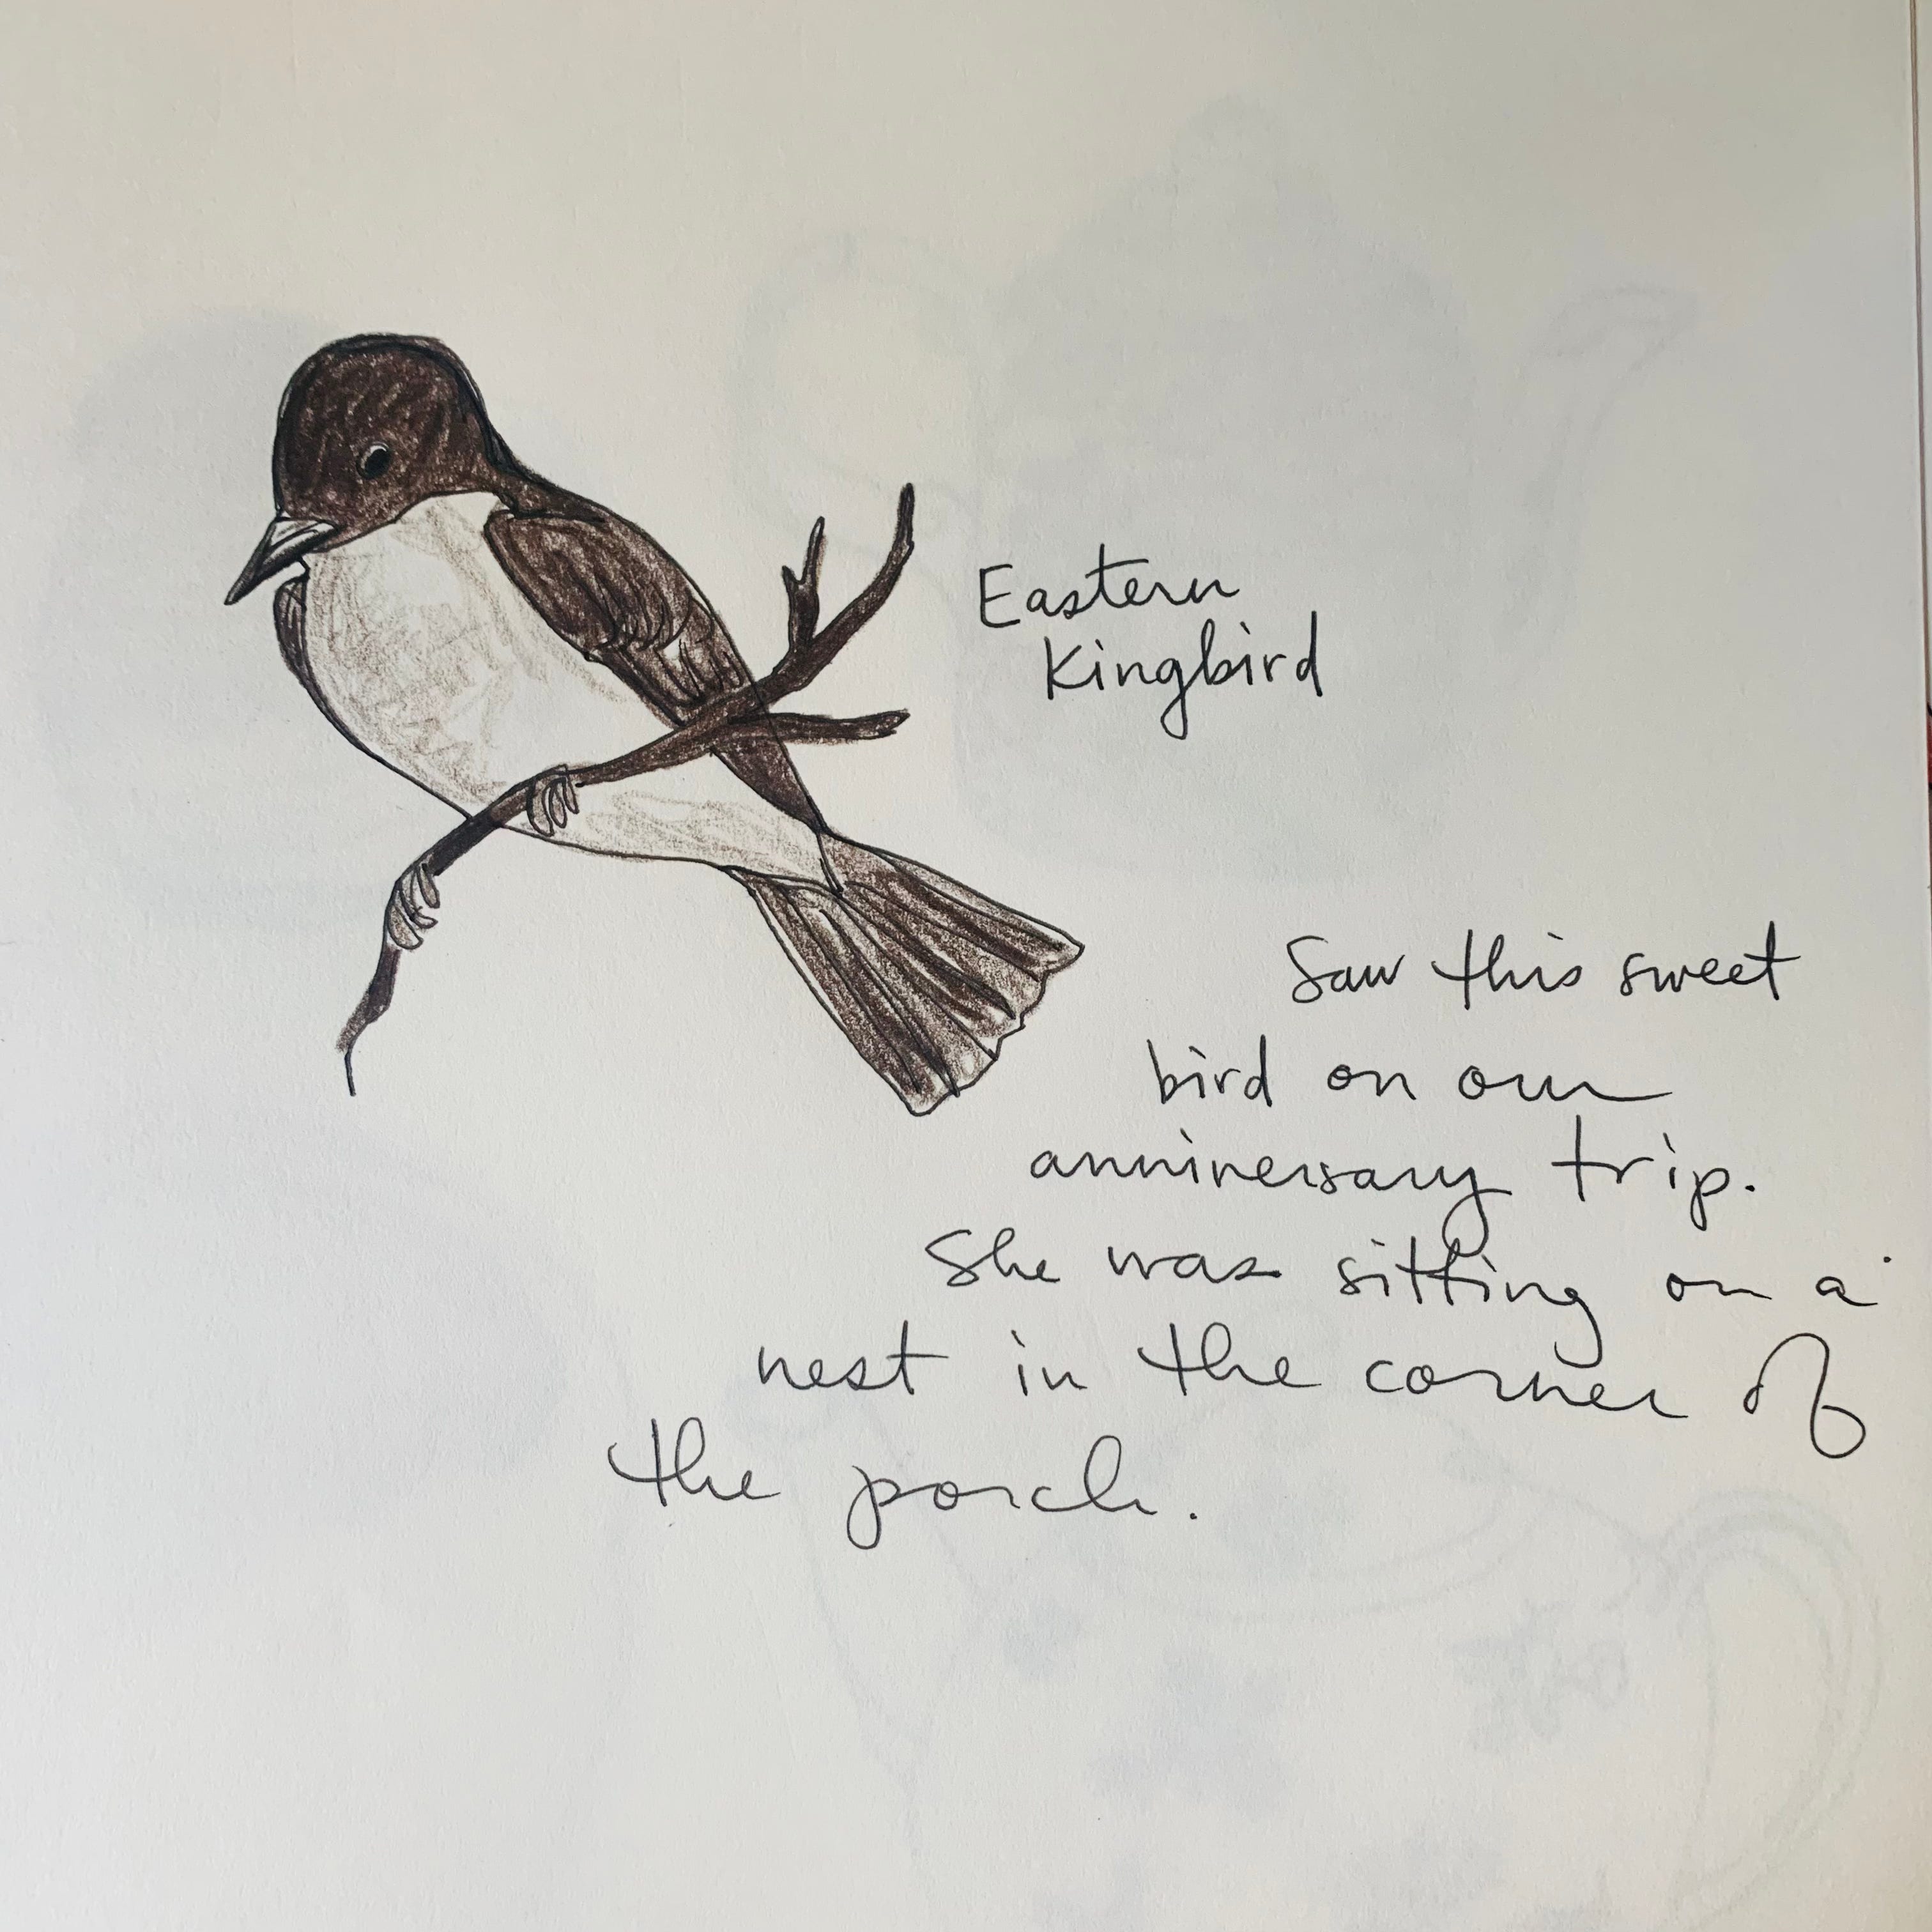 Eastern
Kingbird
Saw this sweet
bird on our
anniversary trip.
She was sitting on a
nest in the corner of
the porch.